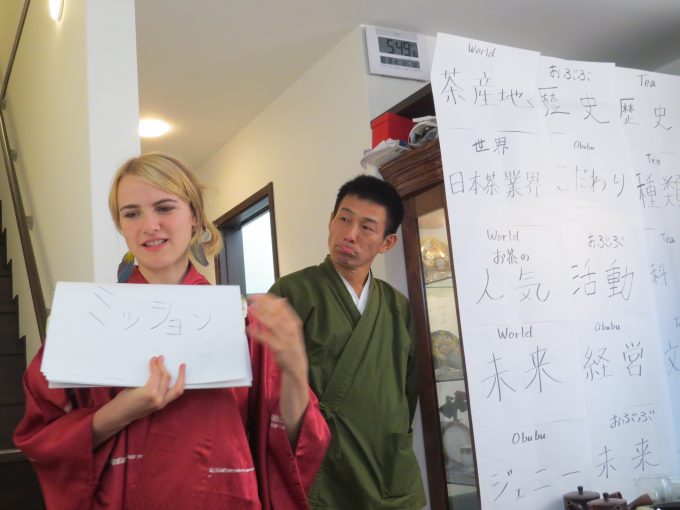 ミッション
5:49
World
茶産地、
おぶぶ
歴史
Tea
歴史
世界
日本茶業界
Obubu
こだわり
Tea
種類
World
お茶の
人気
おぶぶ
活動
Tea
科
World
未来
Obubu
経営
文
Obubu
ジェニー
おぶぶ
未来